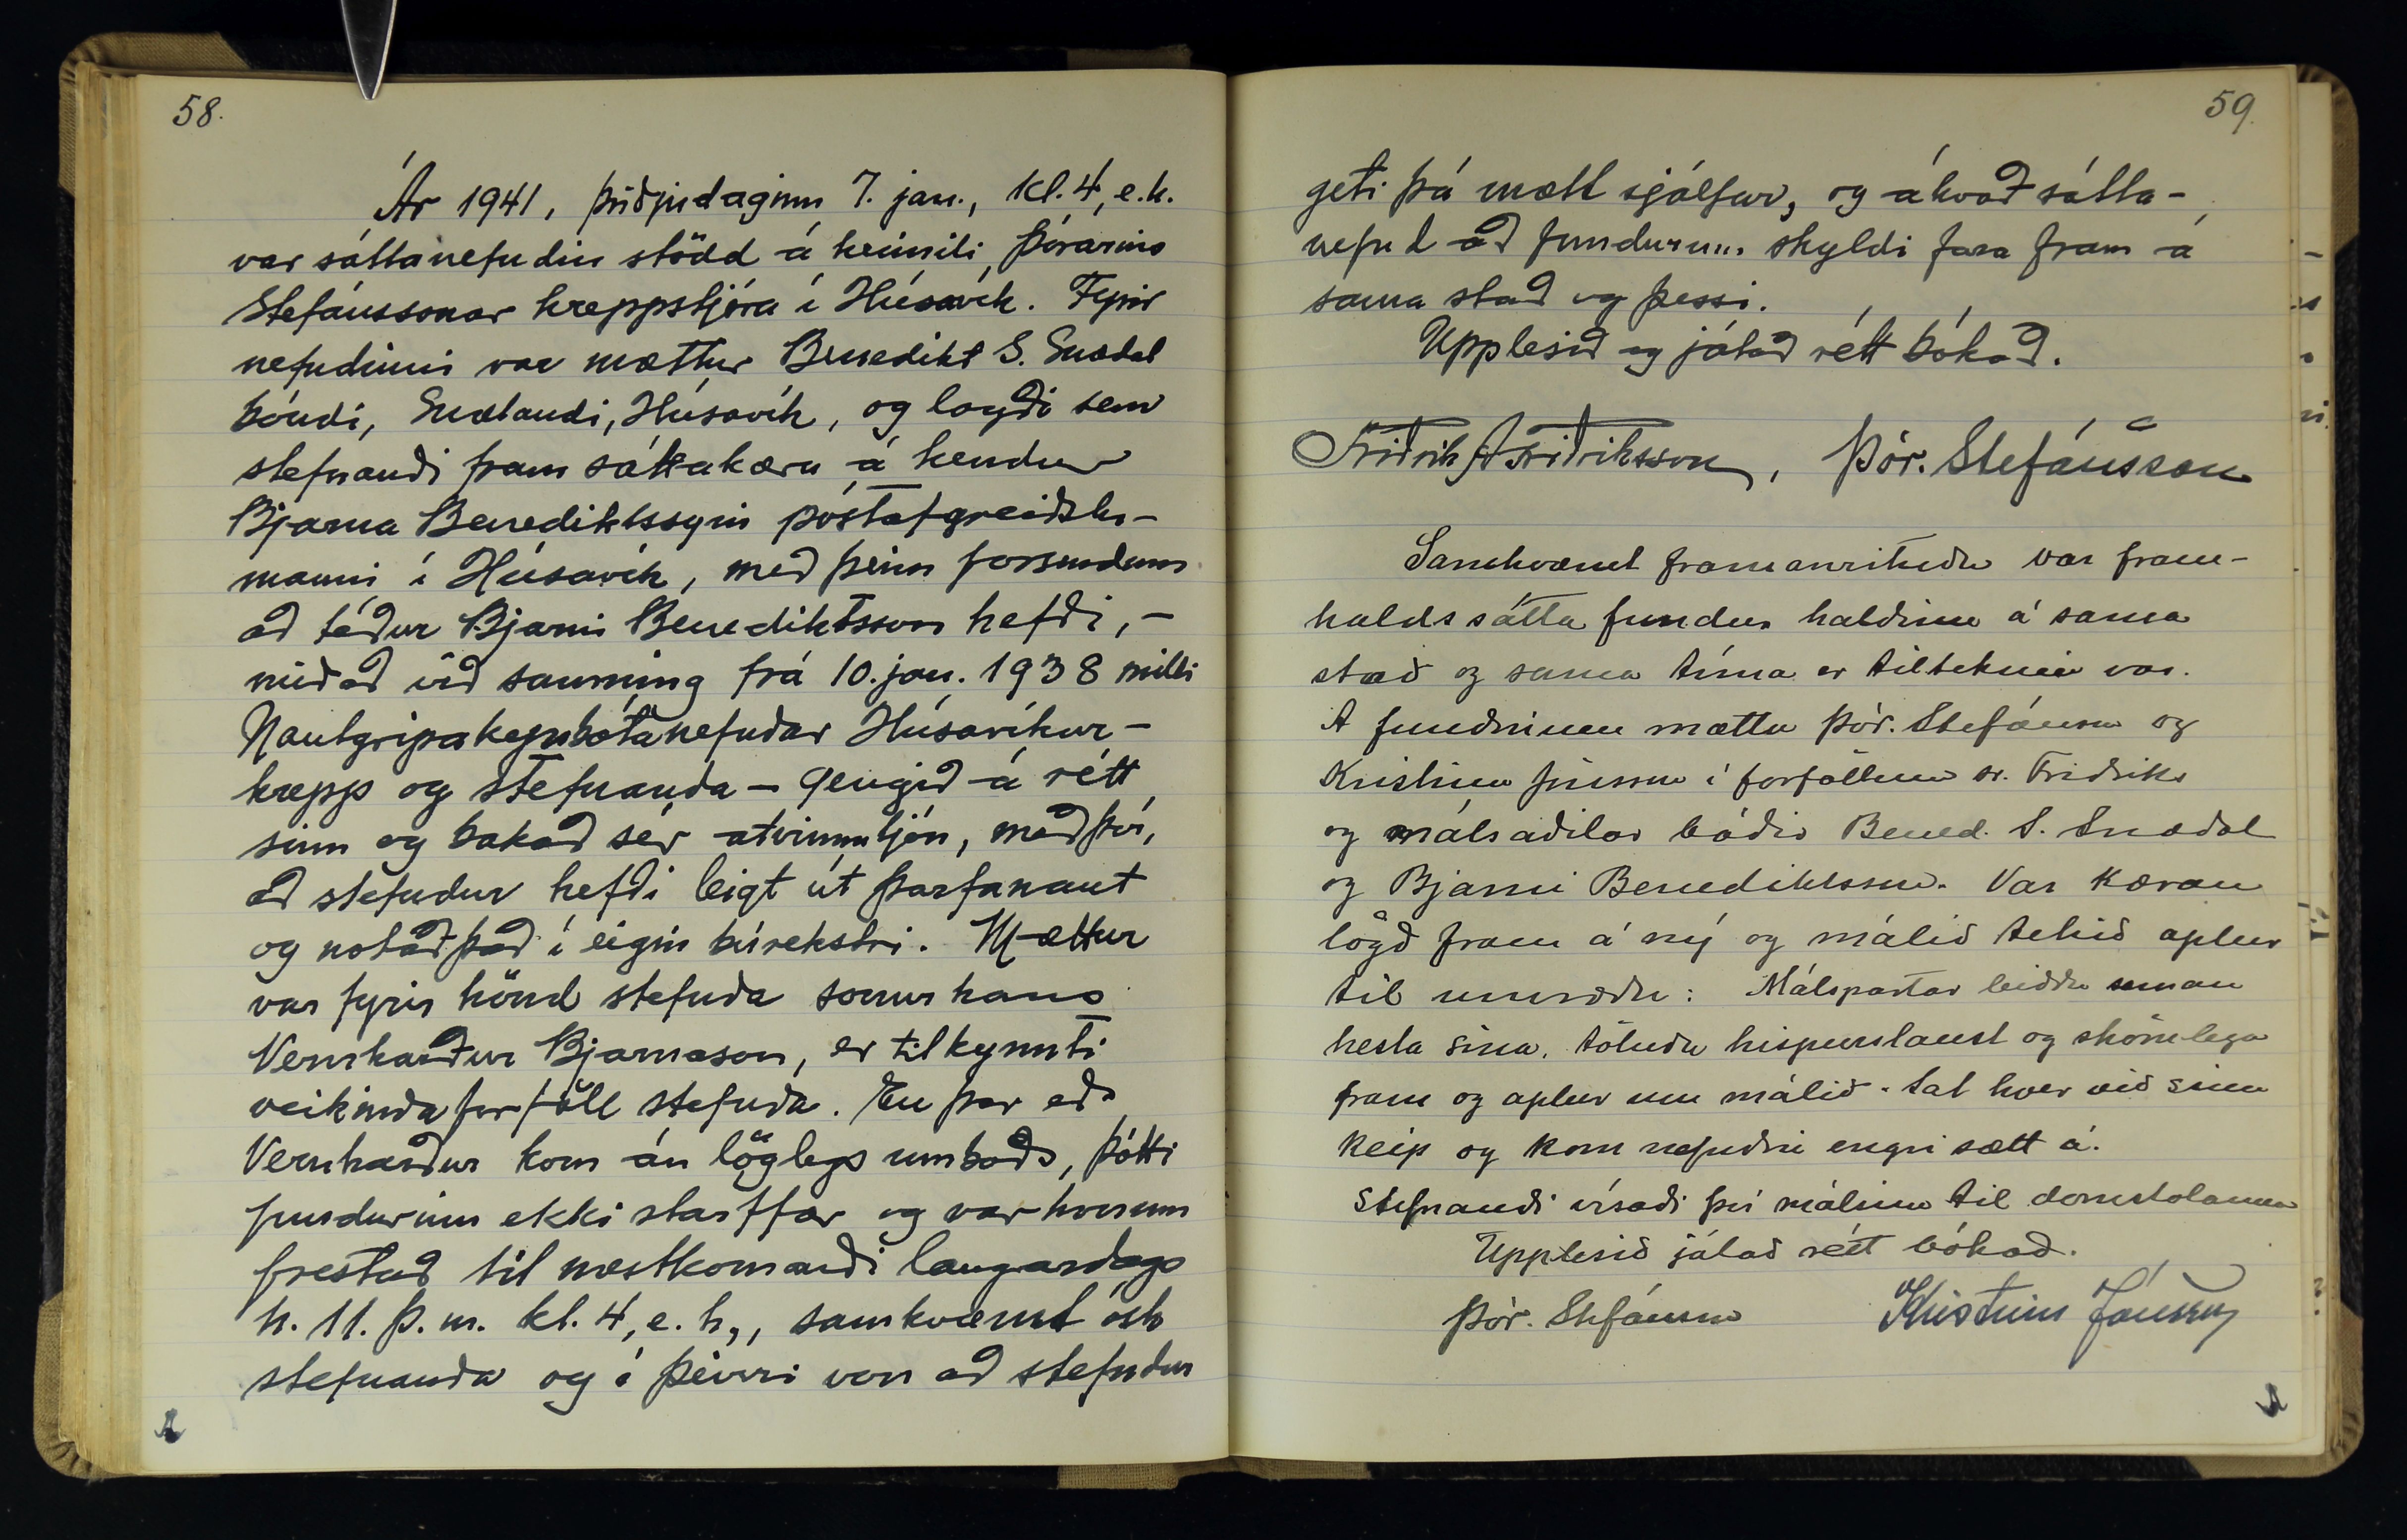 58.
Ár 1941, þriðjudaginn 7. jan., kl. 4, e.h.
var sáttanefndin stödd á heimili Þórarins
Stefánssonar hreppstjóra í Húsavík. Fyrir
nefndinni var mættur Benedikt S. Snædal
bóndi, Snælandi, Húsavík, og lagði sem
stefnandi fram sáttakæru á hendur
Bjarna Benediktssyni póstafgreiðslu-
manni í Húsavík, með þeim forsendum
að téður Bjarni Benediktsson hefði, -
miðað við samning frá 10. jan. 1938 milli
Nautgripakynbótanefndar Húsavíkur-
hrepp og stefnanda - gengið á rétt
sinn og bakað sér atvinnutjón, með því,
að stefndur hefði leigt út þarfanaut
og notað það í eigin búrekstri. Mættur
var fyrir hönd stefnda sonur hans
Vernharður Bjarnason, er tilkynnti
veikindaforföll stefnda. En þar eð
Vernharður kom án löglegs umboðs, þótti
fundurinn ekki starffær og var honum
frestað til næstkomandi laugardags
h. 11. þ. m. kl. 4, e. h., samkvæmt ósk
stefnanda og í þeirri von að stefndur
59.
geti þá mætt sjálfur, og ákvað sátta-
nefnd að fundurinn skyldi fara fram á
sama stað og þessi.
Upplesið og játað rétt bókað.
Friðrik A Friðriksson, Þór. Stefánsson
Samkvæmt framanrituðu var fram-
halds sátta fundur haldinn á sama
stað og sama tíma er tiltekinn var.
Á fundinum mættu Þór. Stefánsson og
Kristinn Jónsson í forföllum sr. Friðriks
og málsaðilar báðir Bened. S. Snædal
og Bjarni Benediktsson. Var kæran
lögð fram á ný og málið tekið aptur
til umræðu: Málspartar leiddu saman
hesta sína, töluðu hispurslaust og skörulega
fram og aptur um málið. Sat hver við sinn
keip og kom nefndin engri sætt á.
Stefnandi vísaði því málinu til domstolanna
Upplesið játað rétt bókað.
Þór. Stefánsson Kristinn Jónsson